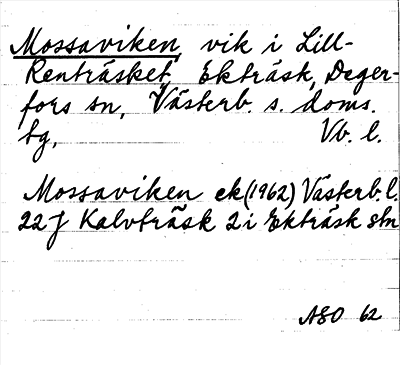 Mossaviken, vik i Lill-
Renträsket, Ekträsk, Deger-
fors sn, Västerb. s. doms.
tg, Vb. l.
Mossaviken ek (1962) Västerb. l.
22 J Kalvträsk 2 i Ekträsk stn
ASO 62